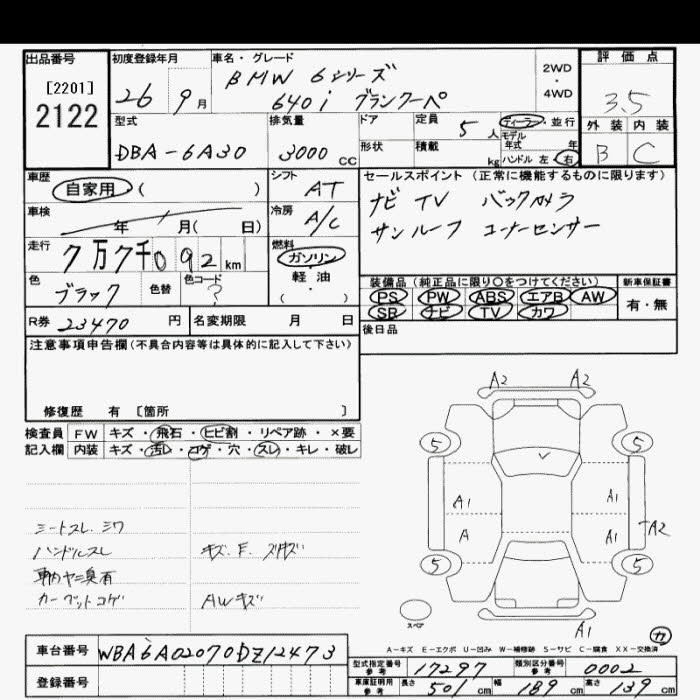 出品番号
[2201]
2122
初度登録年月
26 9月
車名・グレード
BMW 6シリーズ
640i グランクーペ
2WD
・
4WD
評価点
3.5
外装 内装
B C
型式
DBA-6A30
排気量
3000 CC
ドア
形状
定員 5人
積載 kg
ディーラー・並行
モデル年式 年
ハンドル 左 右
車歴
自家用 ( )
シフト AT
車検
年 月( 日)
冷房 A/C
走行
7万7千092km
燃料
ガソリン
軽・油
( )
色
ブラック
色替
色コード
?
R券 23470 円
名変期限 月 日
セールスポイント (正常に機能するものに限ります)
ナビ TV バックカメラ
サンルーフ コーナーセンサー
装備品(純正品に限り○をつけてください)
新車保証書
PS PW ABS エアB AW
SR ナビ TV カワ
有・無
後日品
注意事項申告欄(不具合内容等は具体的に記入して下さい)
修復歴 有 〔箇所 〕
検査員
記入欄
FW キズ・飛石・ヒビ割・リペア跡・×要
内装 キズ・汚レ・コゲ・穴・スレ・キレ・破レ
シートスレ.シワ
ハンドルスレ
車内ヤニ臭有
カーペットコゲ
キズ.F.スリキズ
AWキズ
A2 A2
5 5
A1 A1
A A1 A2
5 5
スペア
A1
カ
A-キズ E-エクボ U-凹み W-補修跡 S-サビ C-腐食 XX-交換済
車台番号 WBA6A02070DZ12473
登録番号
型式指定番号
参考 17297
類別区分番号
参考 0002
車庫証明用
参考
長さ 501cm 幅 189cm 高さ 139cm